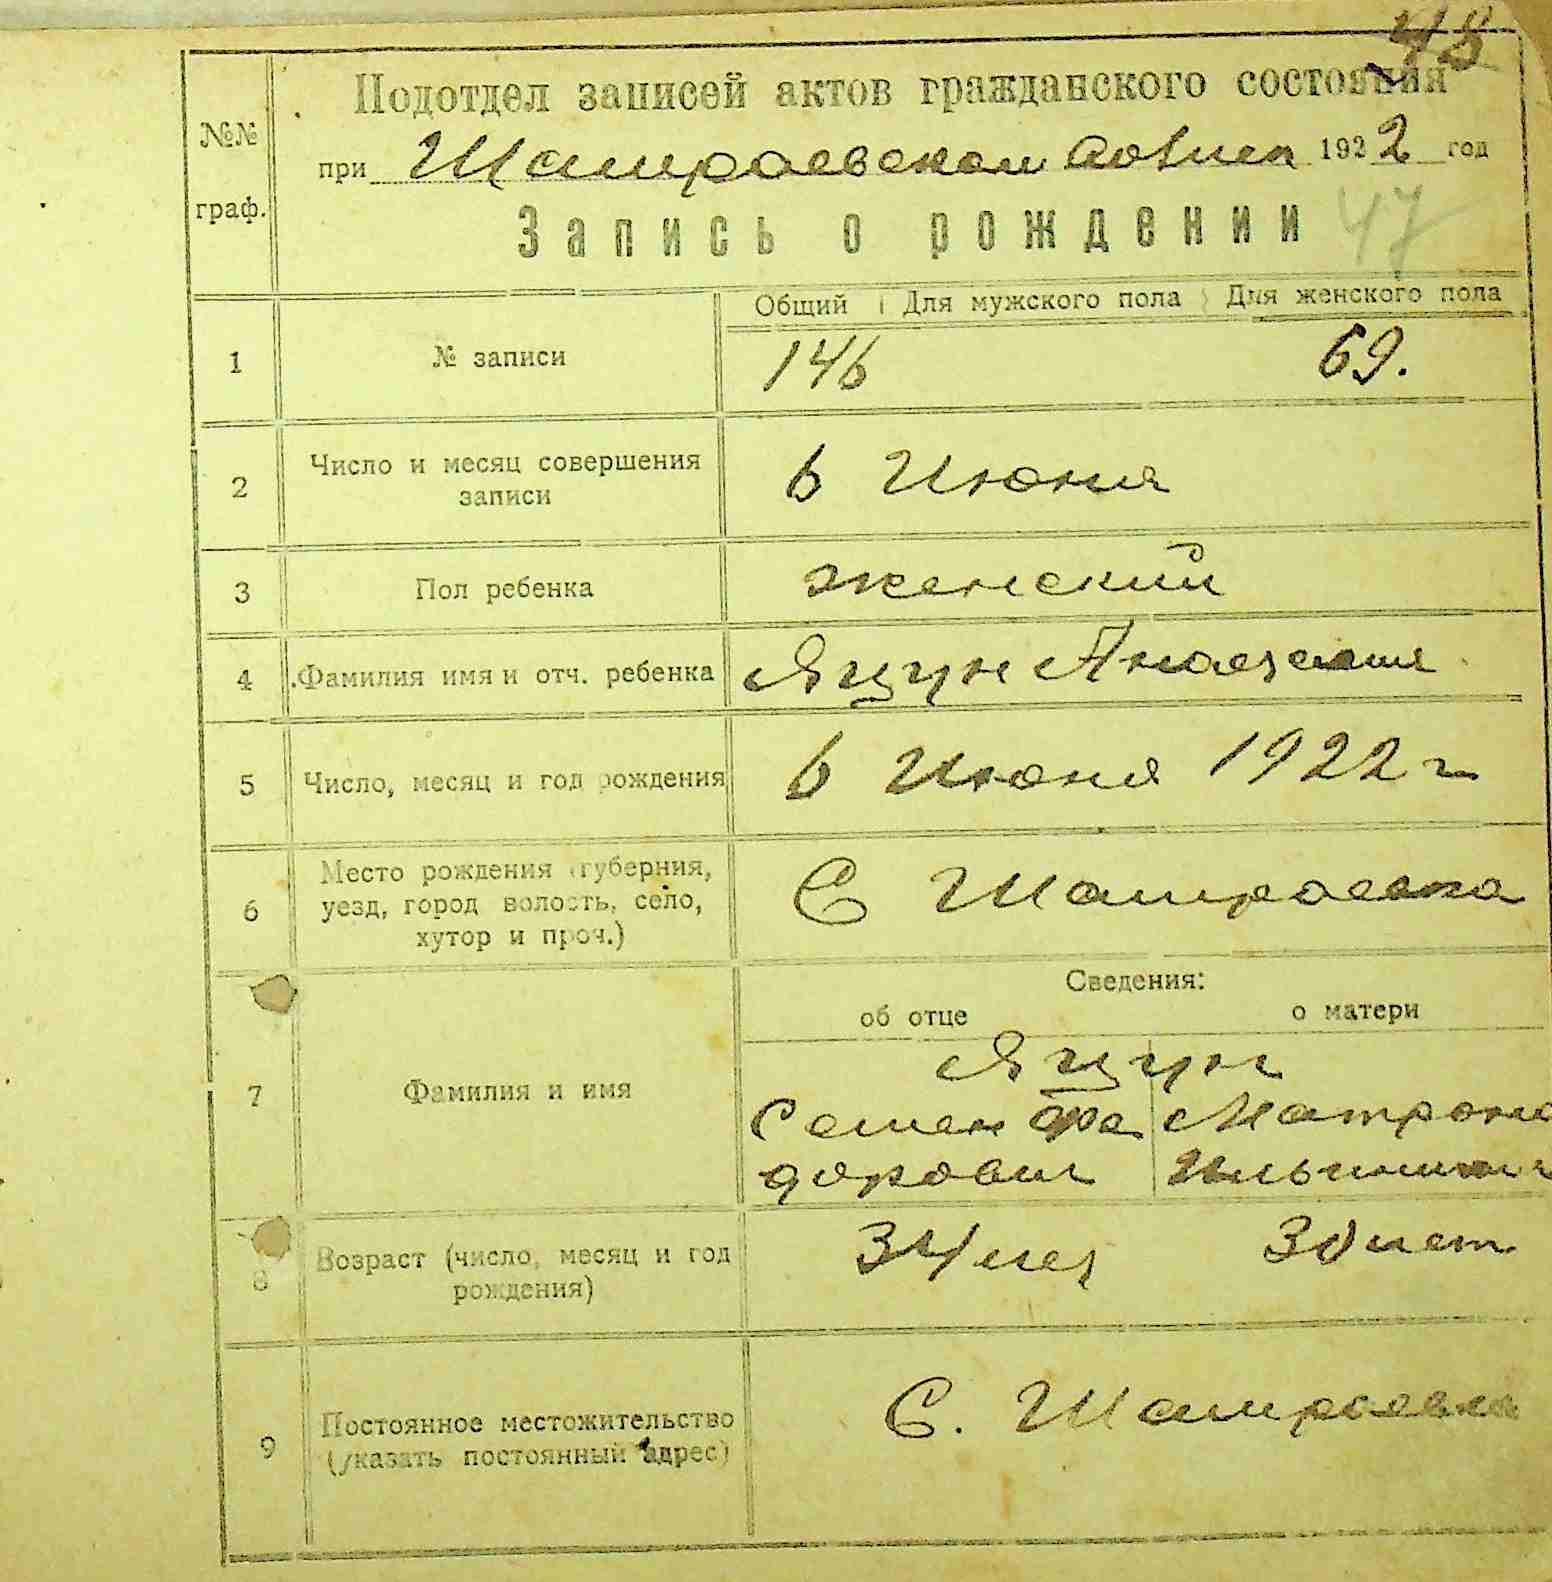 48
Подотдел записей актов гражданского состояния
при Шамраевском 1922 год
Запись о рождении
47
№№ граф.
Общий Для мужского пола Для женского пола
1 № записи 146 69.
2 Число и месяц совершения записи 6 Июня
3 Пол ребенка женский
4 Фамилия имя и отч. ребенка Яцун Анастасия
5 Число, месяц и год рождения 6 Июня 1922 г
6 Место рождения (губерния, уезд, город волость, село, хутор и проч.) С Шамраевка
Сведения:
об отце о матери
7 Фамилия и имя Яцун
Семен Фе Матрона
дорович
8 Возраст (число, месяц и год рождения) 34 лет 30 лет
9 Постоянное местожительство (указать постоянный адрес) С. Шамраевка